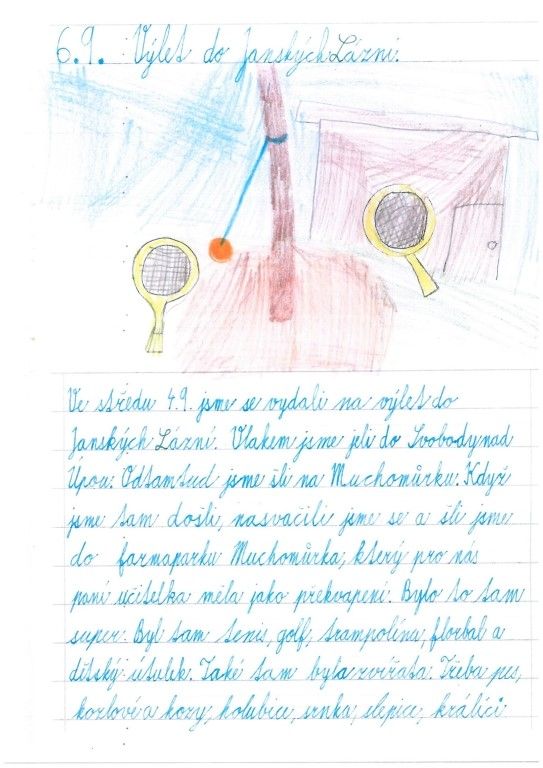 6.9. Výlet do Janských Lázní.
Ve středu 4.9. jsme se vydali na výlet do
Janských Lázní. Vlakem jsme jeli do Svobody nad
Úpou. Odtamtud jsme šli na Muchomůrku. Když
jsme tam došli, nasvačili jsme se a šli jsme
do farmaparku Muchomůrka, který pro nás
paní učitelka měla jako překvapení. Bylo to tam
super. Byl tam tenis, golf, trampolína, florbal a
dětský útulek. Také tam byla zvířata. Třeba pes,
kozlové a kozy, holubice, srnka, slepice, králíci